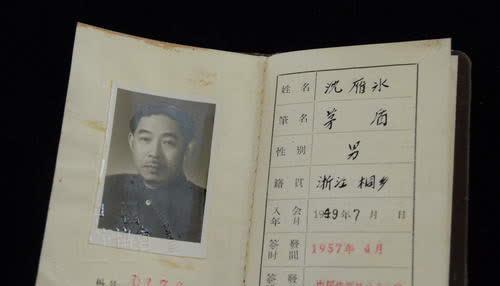 編號
姓名 沈雁冰
筆名 茅盾
性別 男
籍貫 浙江桐乡
入會年月 1949年7月 日
簽發時間 1957年4月
簽發